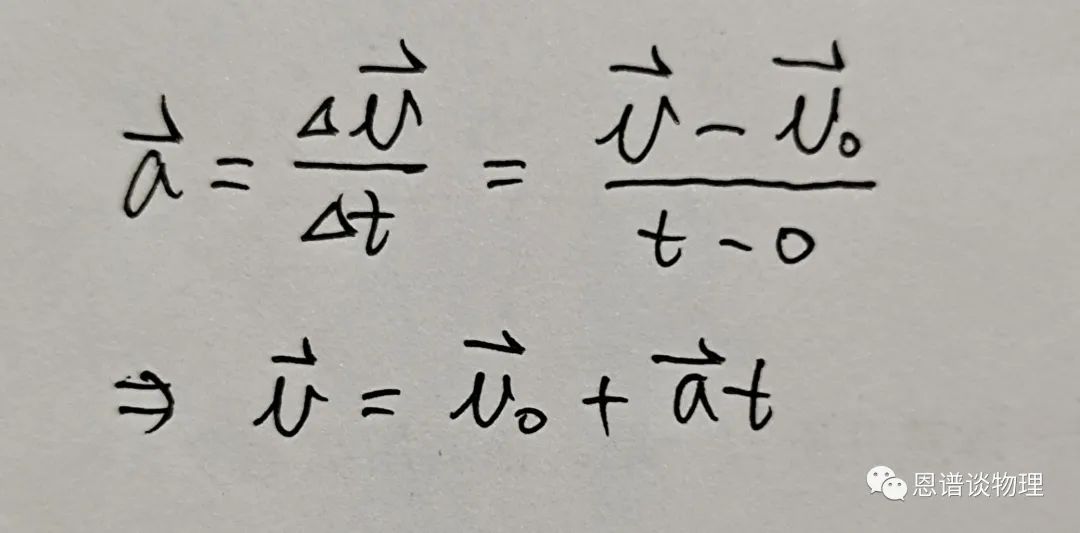 $\vec{a} = \frac{\Delta \vec{v}}{\Delta t} = \frac{\vec{v} - \vec{v}_0}{t - 0}$
$\Rightarrow \vec{v} = \vec{v}_0 + \vec{a}t$
恩谱谈物理